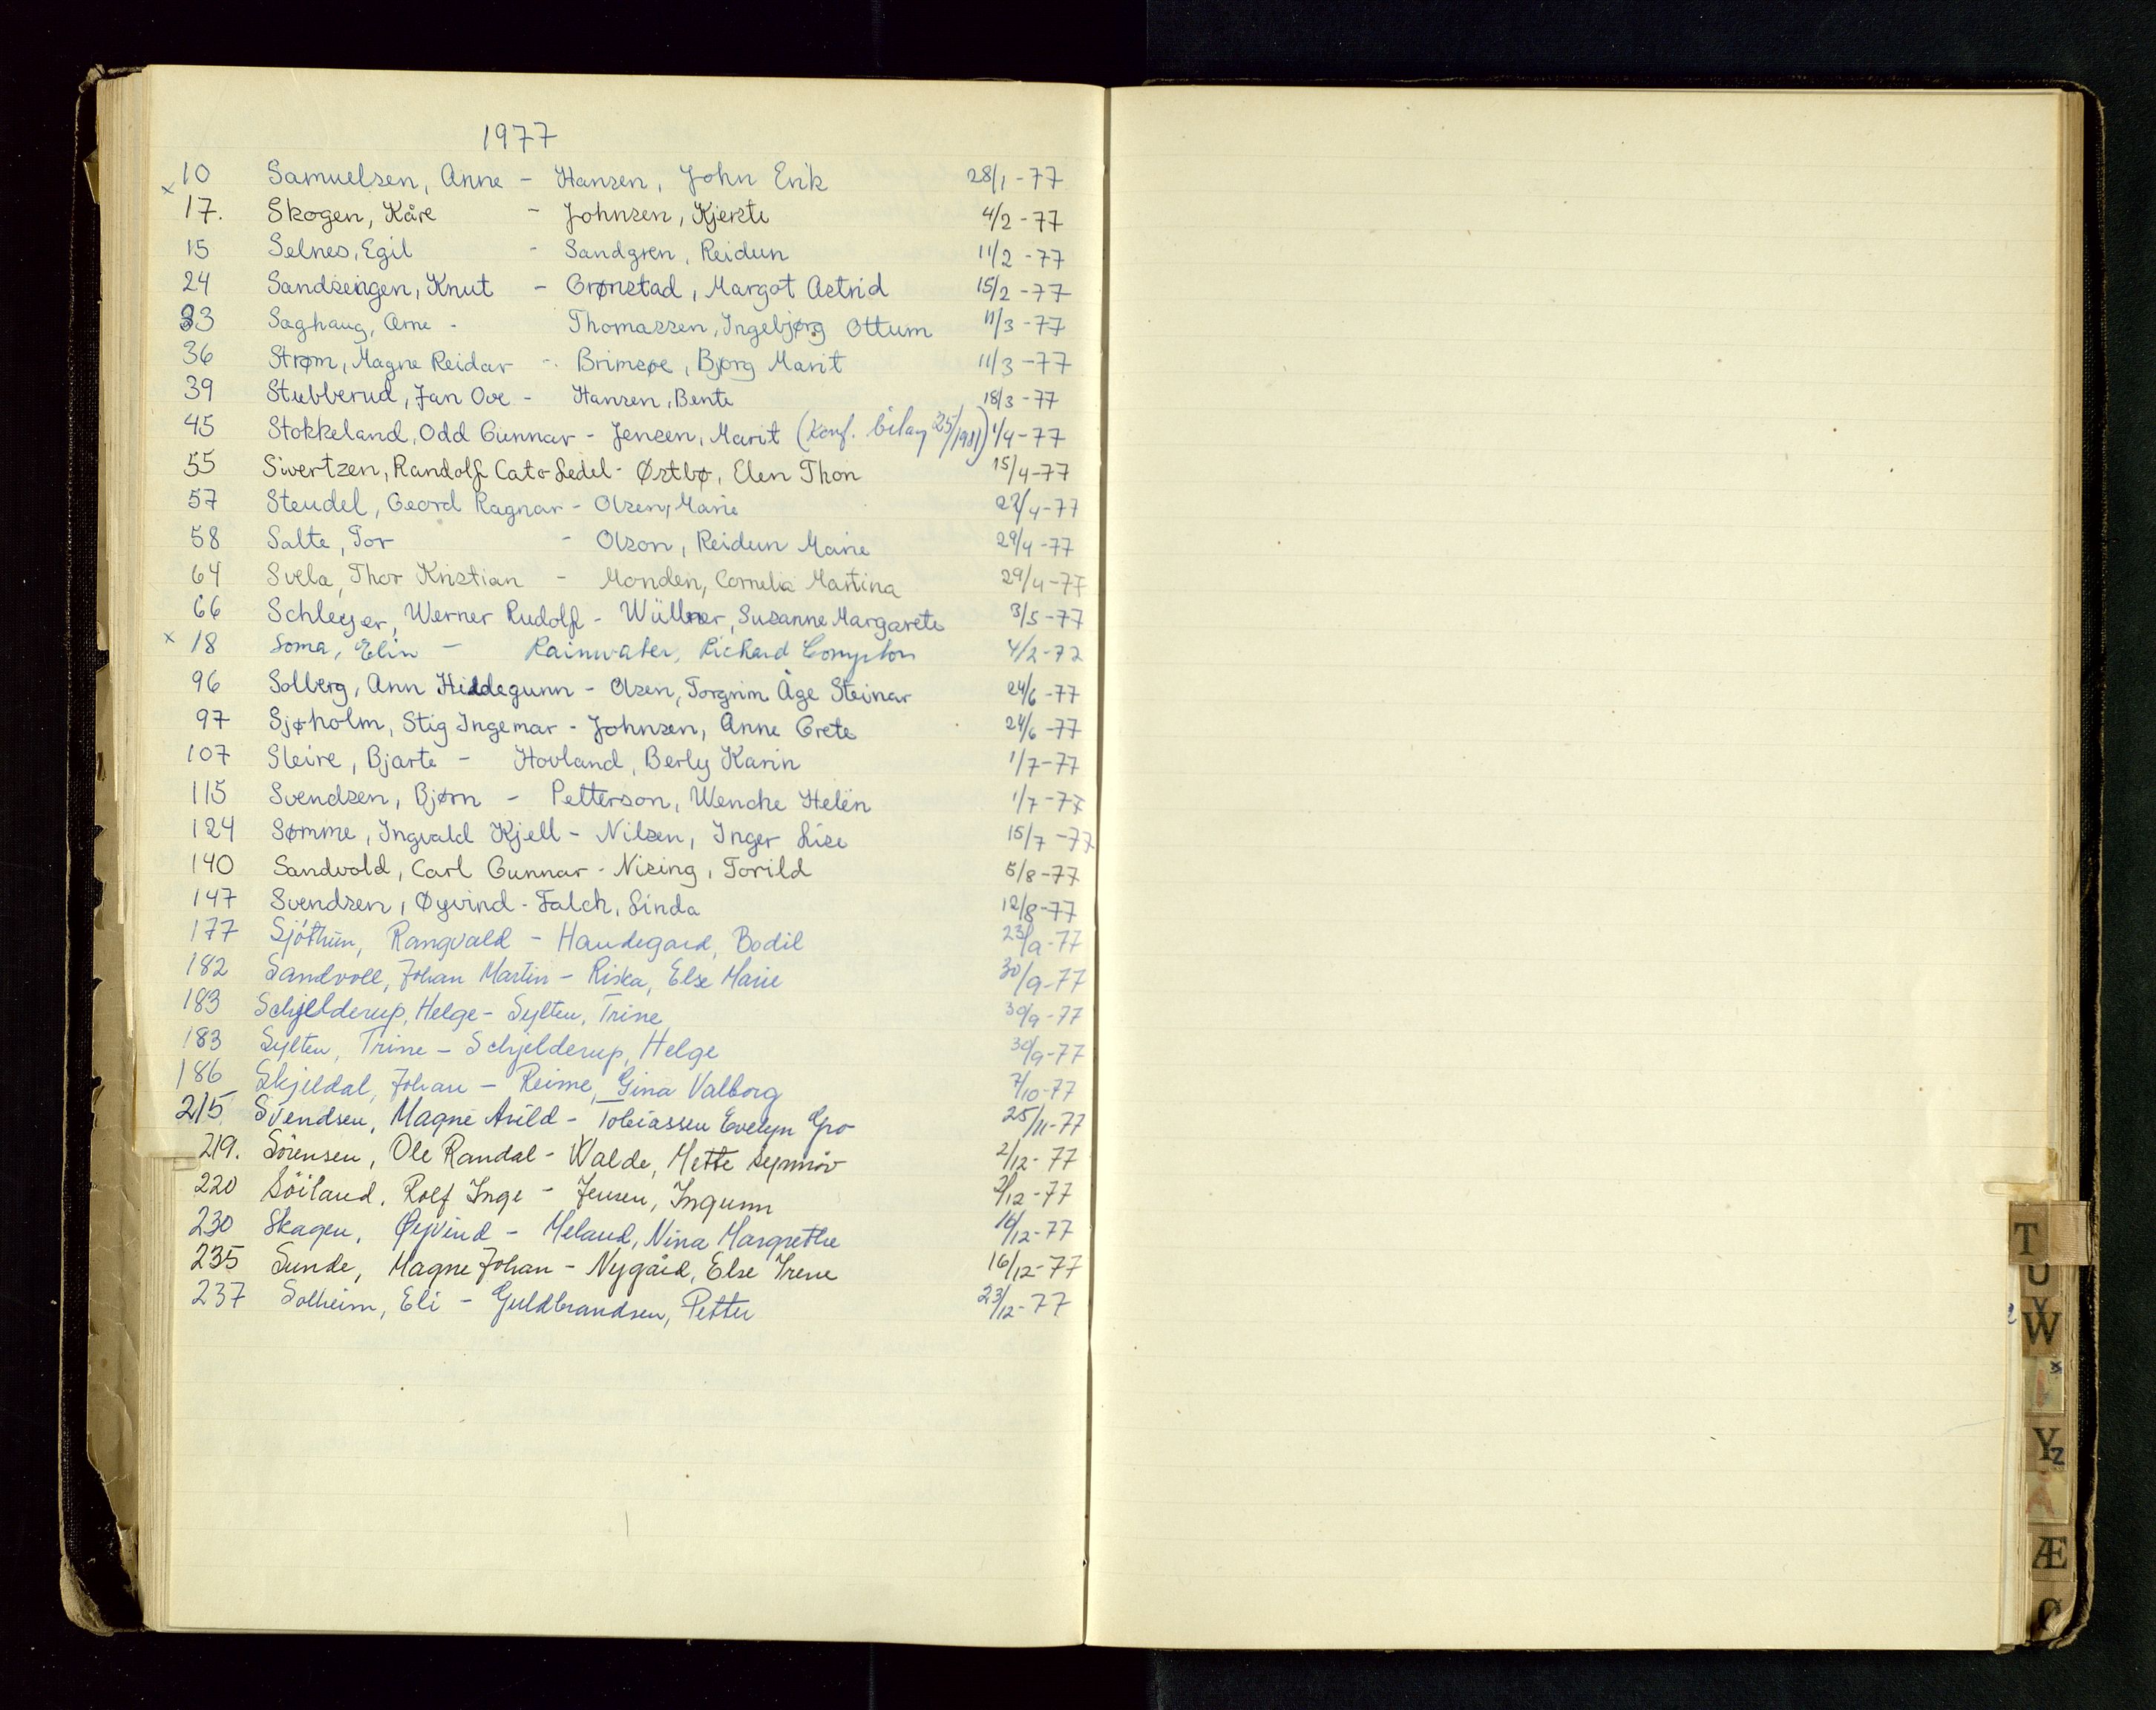 1977
10 Samuelsen, Anne - Hansen, John Erik 28/1-77
x
17. Skogen, Kåre - Johnsen, Kjersti 4/2-77
15 Selnes, Egil - Sandgren, Reidun 11/2-77
24 Sandsengen, Knut - Grønstad, Margot Astrid 15/2-77
33 Saghaug, Arne - Thomassen, Ingebjørg Ottum 11/3-77
36 Strøm, Magne Reidar - Brimsøe, Bjørg Marit 11/3-77
39 Stubberud, Jan Ove - Hansen, Bente 18/3-77
45 Stokkeland, Odd Gunnar - Jensen, Marit (Konf. bilag 25/1981) 1/4-77
55 Sivertzen, Randolf Cato Ledel - Østbø, Elen Thon 15/4-77
57 Steudel, Geord Ragnar - Olsen, Marie 22/4-77
58 Salte, Tor - Olson, Reidun Marie 29/4-77
64 Svela, Thor Kristian - Monden, Cornelia Martina 29/4-77
66 Schleyer, Werner Rudolf - Wüllner, Susanne Margarete 3/5-77
x 18 Soma, Elin - Rainwater, Richard Compton 4/2-77
96 Solberg, Ann Hildegunn - Olsen, Torgrim Åge Steinar 24/6-77
97 Sjøholm, Stig Ingemar - Johnsen, Anne Grete 24/6-77
107 Sleire, Bjarte - Hovland, Berly Karin 1/7-77
115 Svendsen, Bjørn - Petterson, Wenche Helen 1/7-77
124 Sømme, Ingvald Kjell - Nilsen, Inger Lise 15/7-77
140 Sandvold, Carl Gunnar - Nising, Torild 5/8-77
147 Svendsen, Øyvind - Falch, Linda 12/8-77
177 Sjöthun, Rangvald - Haudegard, Bodil 23/9-77
182 Sandvoll, Johan Martin - Riska, Else Marie 30/9-77
183 Schjelderup, Helge - Sylten, Trine 30/9-77
183 Sylten, Trine - Schjelderup, Helge 30/9-77
186 Skjeldal, Johan - Reime, Gina Valborg 7/10-77
215 Svendsen, Magne Arild - Tobiassen Evelyn Gro 25/11-77
219. Sörensen, Ole Randal - Walde, Mette Synnöv 2/12-77
220 Söiland, Rolf Inge - Jensen, Ingunn 2/12-77
230 Skagen, Öyvind - Meland, Nina Margrethe 16/12-77
235 Sunde, Magne Johan - Nygård, Else Irene 16/12-77
237 Solheim, Eli - Guldbrandsen, Petter 23/12-77
T
U
V
W
Y
Z
Å
Æ
Ø